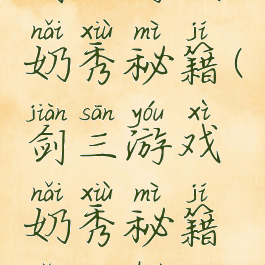 nǎi xiù mì jí
奶秀秘籍(
jiàn sān yóu xì
剑三游戏
nǎi xiù mì jí
奶秀秘籍